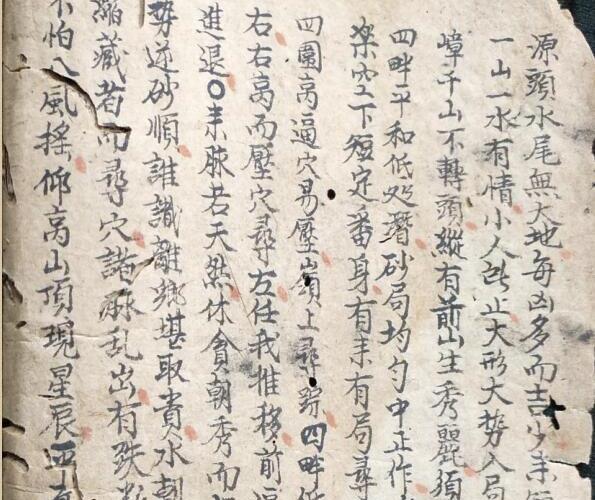 源頭水尾無大地每凶多而吉少耒
一山一水有情小人所止大形大勢入局
嶂千山不轉頭縱有前山生秀麗須
四畔平和低処潛砂局均勻中正作
架空下須定番身有耒有局尋
四圍高逼穴易壓巔嶺上尋蹤四畔低
右右高而壓穴尋左任我推移前逼
進退○耒脉若天然休貪朝秀而
勢逆砂順誰識離鄉堪取貴水朝
縮藏者而尋穴諸脉乱出有跌
不怕八風搖仰高山頂現星辰平